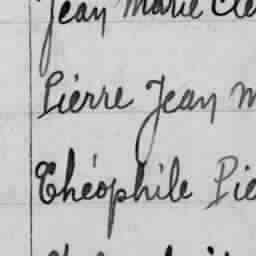 Jean Marie
Pierre Jean
Théophile